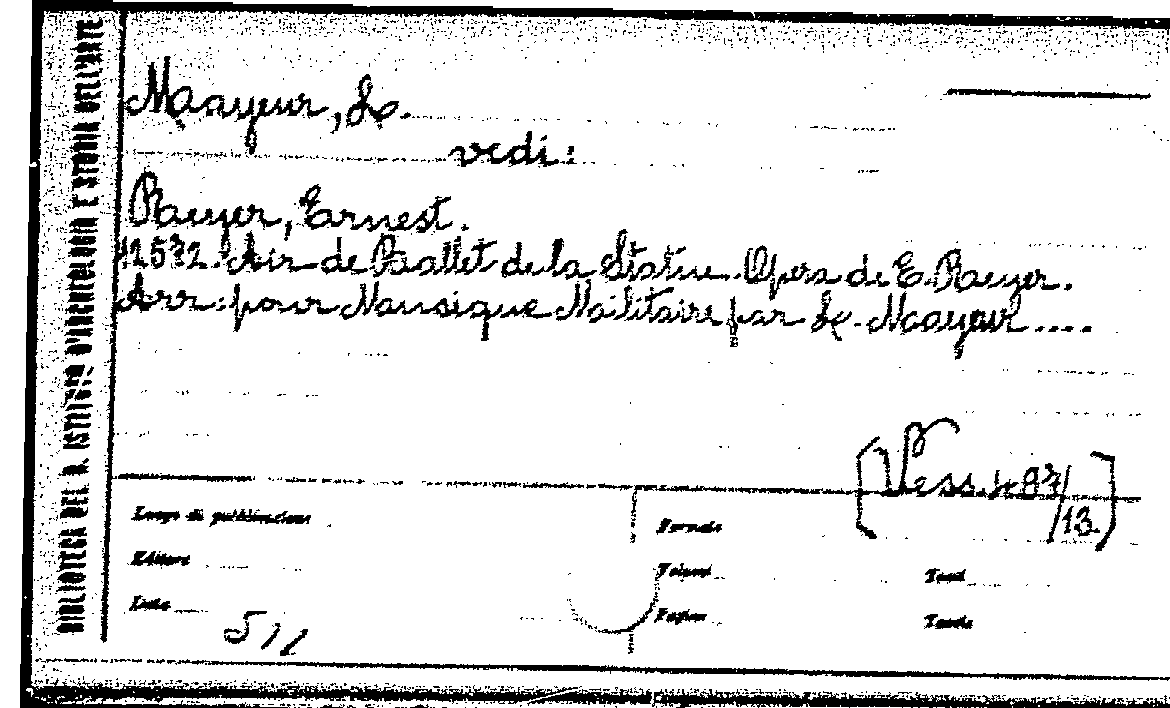 BIBLIOTECA DEL R. ISTITUTO D'ARCHEOLOGIA E STORIA DELL'ARTE
Mayeur, L.
vedi:
Reyer, Ernest.
12532. Air de Ballet de la Statue. Opera de E. Reyer.
Arr. pour Musique Militaire par L. Mayeur....
[Vess. 483/
13.]
Luogo di pubblicazione
Formato
Editore
Volumi
Tomi
Data
Pagine
Tavole
511